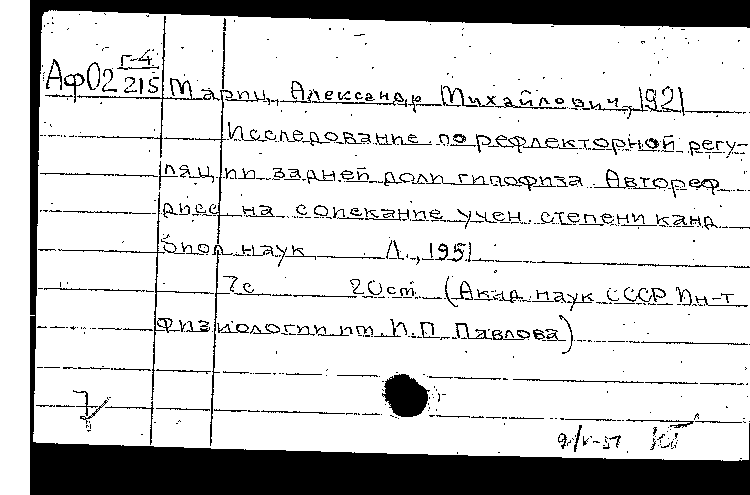 Г-4
АфО2 215 Мариц, Александр Михайлович, 1921
Исследование по рефлекторной регу-
ляции задней доли гипофиза. Автореф
дисс. на соискание учен. степени канд
биол наук Л., 1951
7с 20cm (Акад. наук СССР Ин-т
физиологии им. И.П. Павлова)
9/V-51